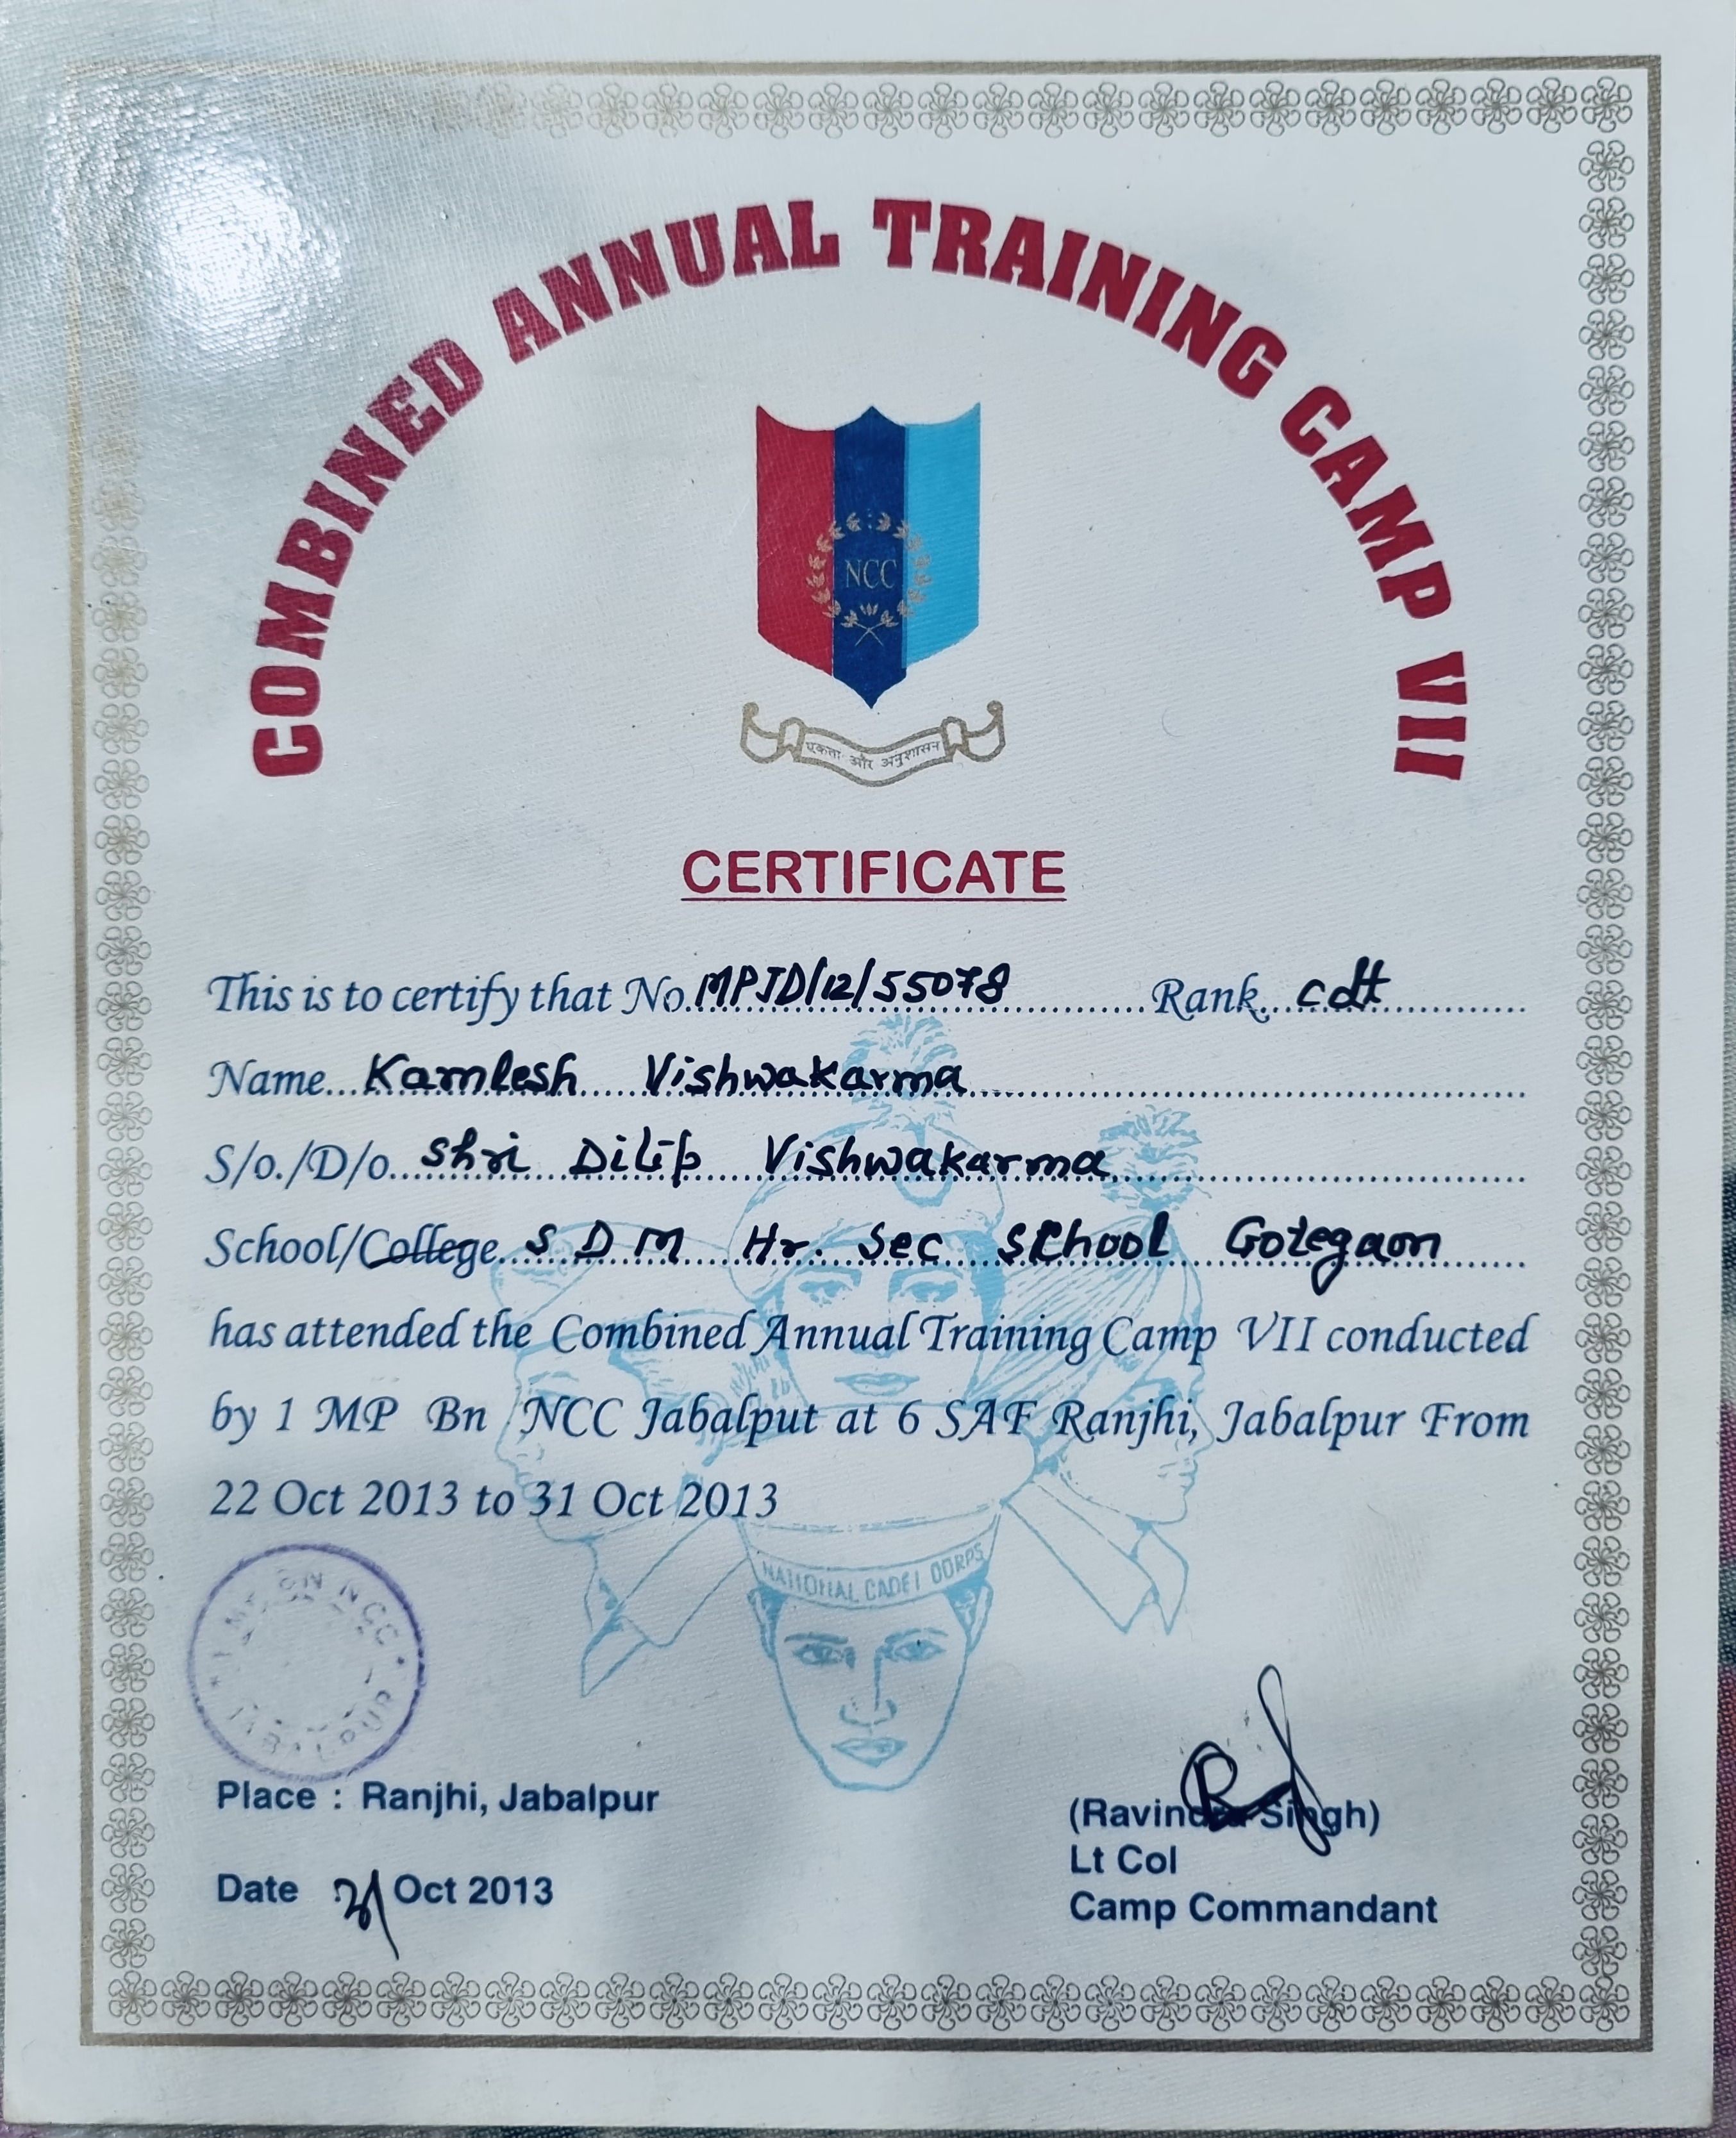 COMBINED ANNUAL TRAINING CAMP VII
NCC
एकता और अनुशासन
CERTIFICATE
This is to certify that No. MPJD/12/55078 Rank cdt
Name Kamlesh Vishwakarma
S/o./D/o. Shri Dilip Vishwakarma
School/College S D M Hr. Sec School Gotegaon
has attended the Combined Annual Training Camp VII conducted
by 1 MP Bn NCC Jabalput at 6 SAF Ranjhi, Jabalpur From
22 Oct 2013 to 31 Oct 2013
NATIONAL CADET CORPS
1 MP BN NCC
JABALPUR
Place : Ranjhi, Jabalpur
(Ravindra Singh)
Lt Col
Date 31 Oct 2013
Camp Commandant